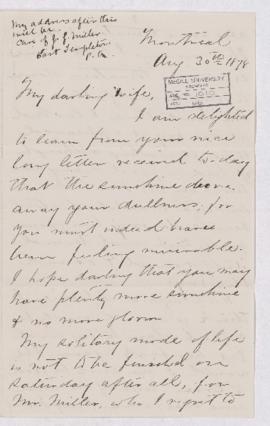 My address after this
will be
Care of J. J. Miller
East Templeton
P. Q.
Montreal
Aug 30th 1878
McGILL UNIVERSITY
ARCHIVES
My darling Wife,
I am delighted
to learn from your nice
long letter received to-day
that the sunshine drove
away your dullness, for
you must indeed have
been feeling miserable.
I hope darling that you may
have plenty more sunshine
& no more gloom
My solitary mode of life
is not to be finished on
Saturday after all, for
Mr. Miller, who I regret to